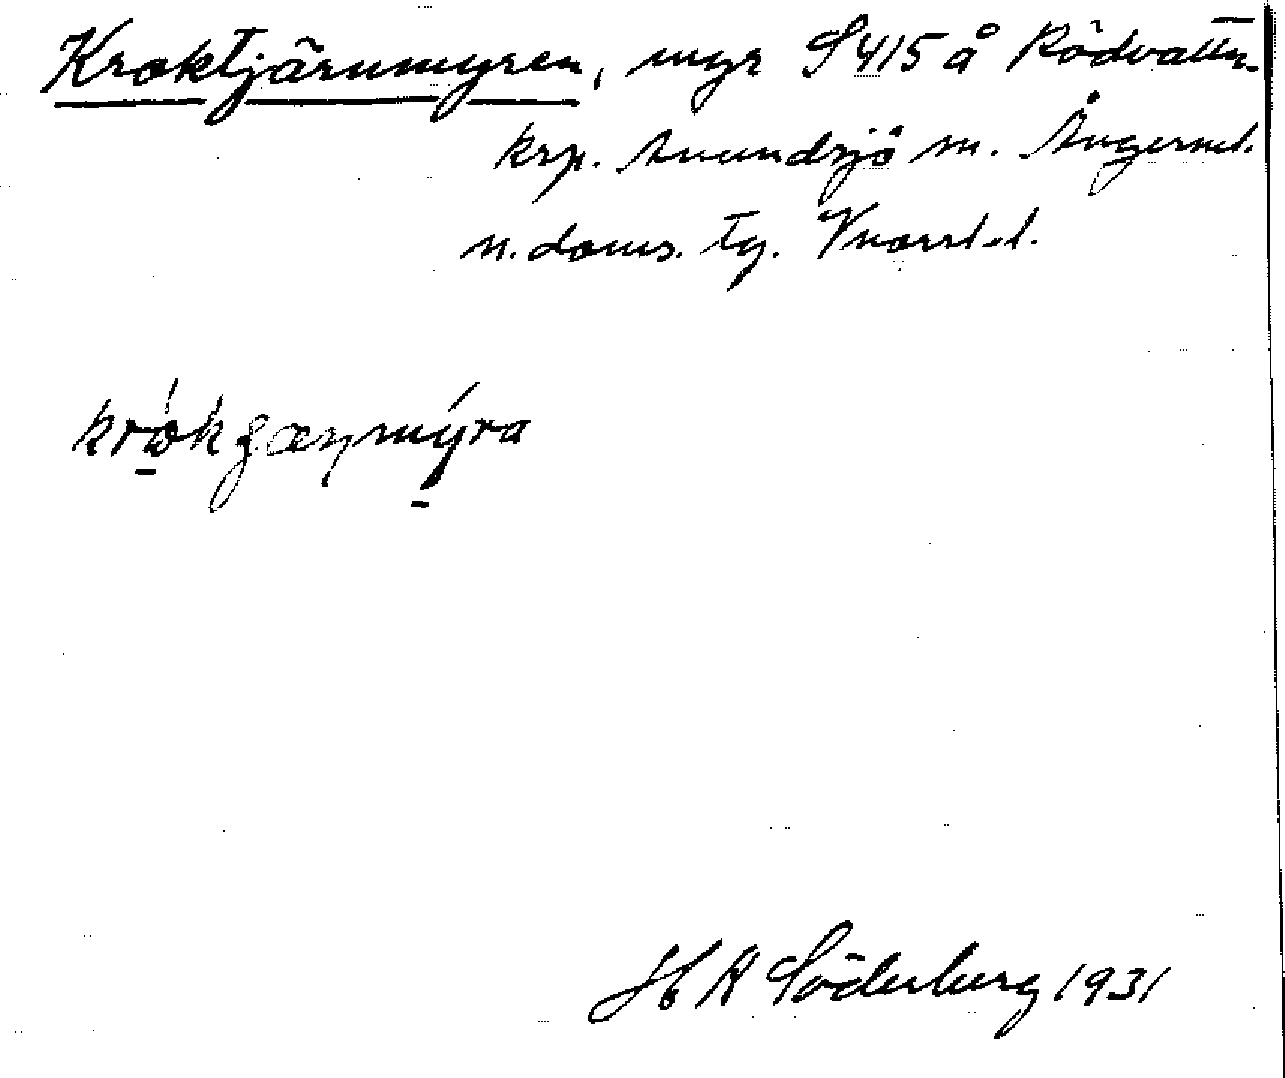 Kroktjärnmyren, myr S 415 å Rödvattn.
krp. Anundsjö sn. Ångerml.
n. doms. Tg. Vnorrl. l.
krókʒæɳmýra
H A Söderberg 1931